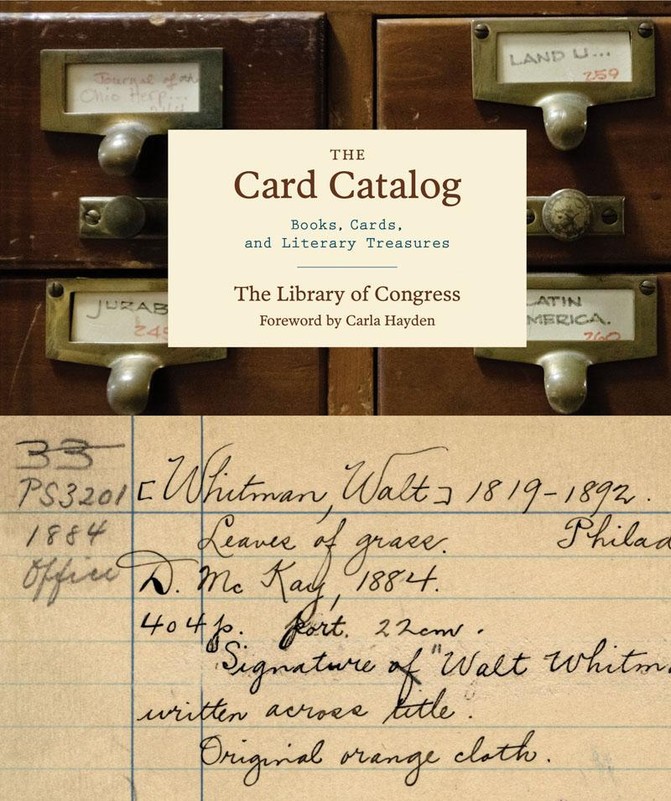 Journal of an
Ohio Herp...
LAND U...
259
THE
Card Catalog
Books, Cards,
and Literary Treasures
The Library of Congress
Foreword by Carla Hayden
JURAB
24
ATIN
MERICA.
260
33
PS3201 [Whitman, Walt] 1819-1892.
1884 Leaves of grass. Philad
Office D. McKay, 1884.
404 p. port. 22cm.
Signature of "Walt Whitm
written across title.
Original orange cloth.